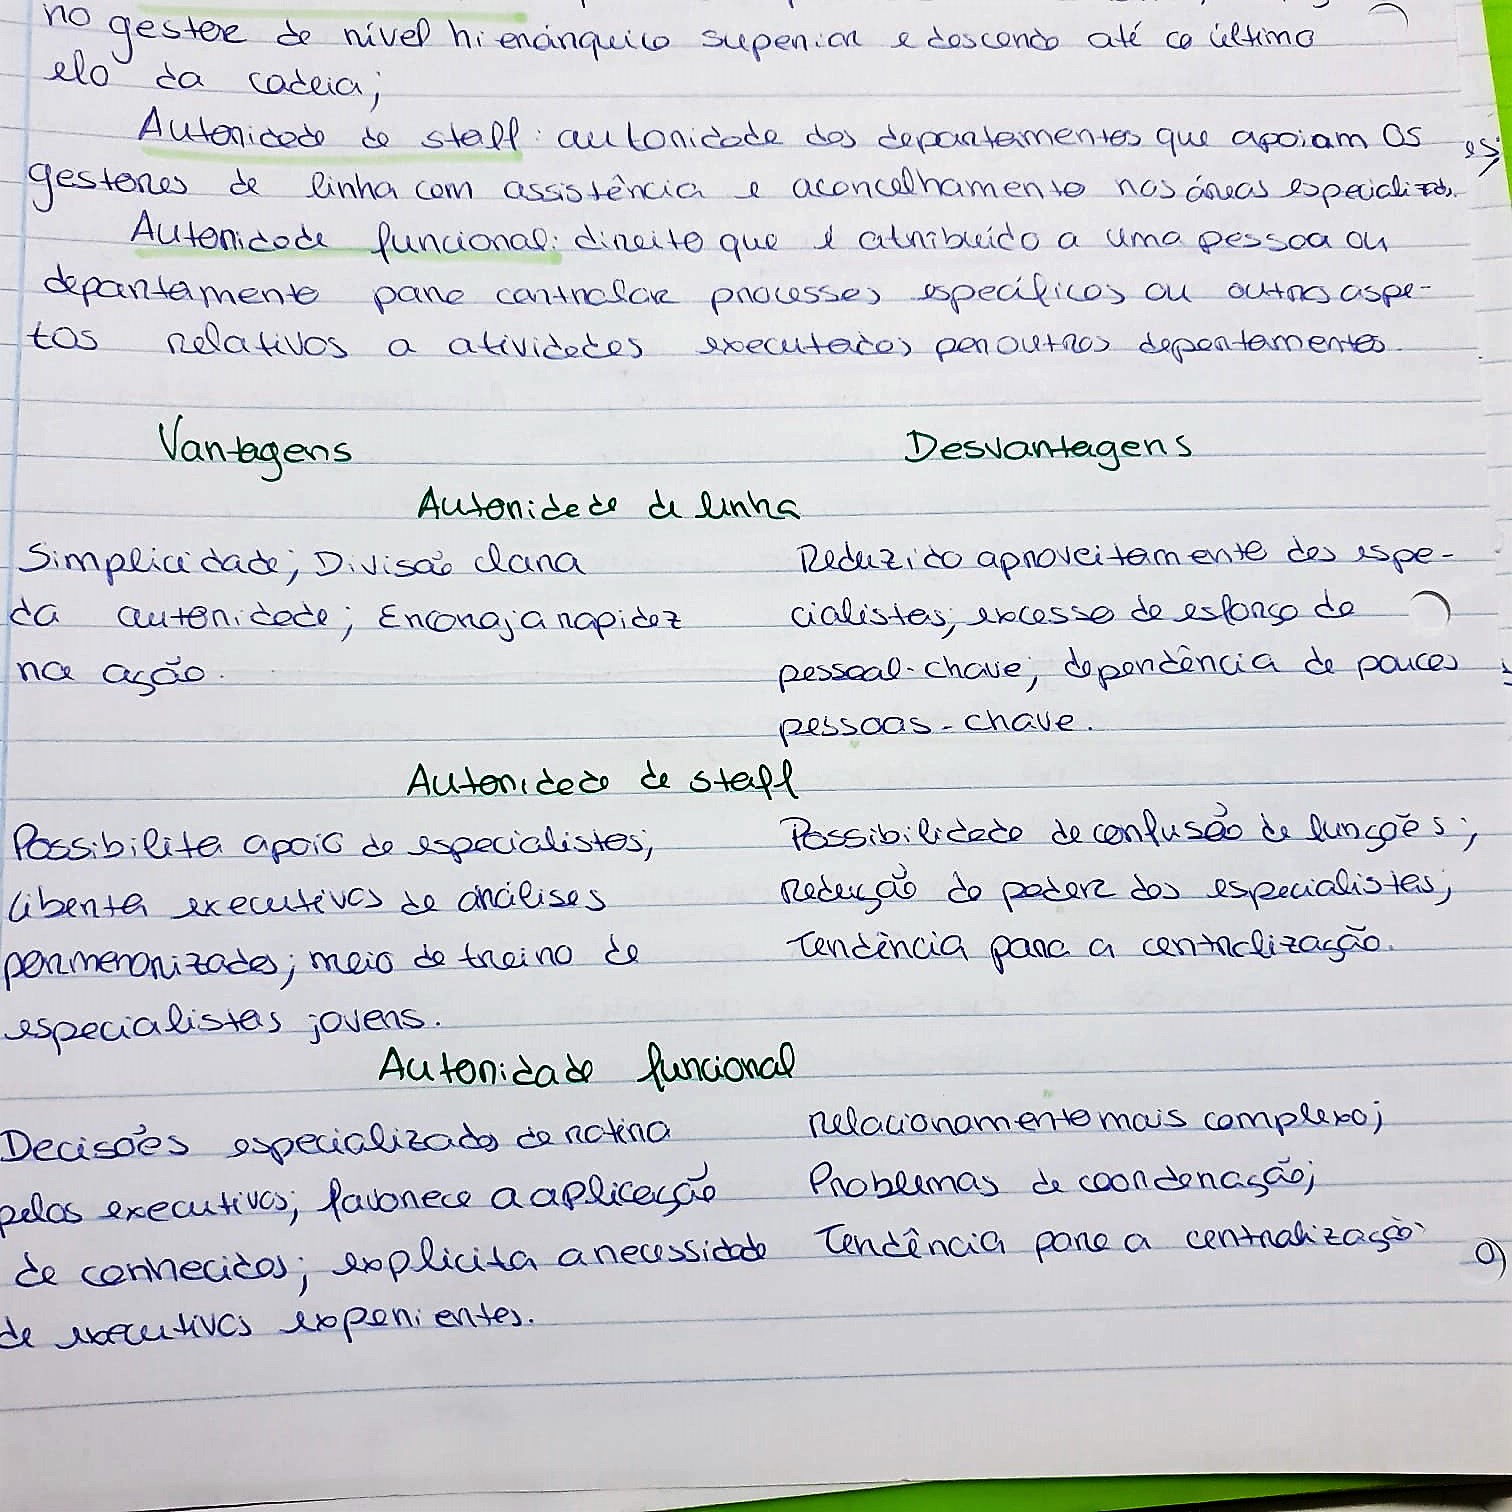 no gestor de nível hierárquico superior e descendo até ao último
elo da cadeia;
Autoridade de staff: autoridade dos departamentos que apoiam os
gestores de linha com assistência e aconcelhamento nas áreas especializds.
Autoridade funcional: direito que é atribuído a uma pessoa ou
departamento para controlar processos específicos ou outros aspe-
tos relativos a atividades executadas por outros departamentos.
Vantagens
Desvantagens
Autoridade de linha
Simplicidade; Divisão clara
da autoridade; Encoraja a rapidez
na ação.
Reduzido aproveitamento dos espe-
cialistas; excesso de esforço do
pessoal-chave; dependência de poucas
pessoas-chave.
Autoridade de staff
Possibilita apoio de especialistas;
liberta executivos de análises
pormenorizadas; meio de treino de
especialistas jovens.
Possibilidade de confusão de funções;
Redução do poder dos especialistas;
Tendência para a centralização.
Autoridade funcional
Decisões especializadas de rotina
pelos executivos; favorece a aplicação
de conhecidos; explicita a necessidade
de executivos experientes.
Relacionamento mais complexo;
Problemas de coordenação;
Tendência para a centralização.